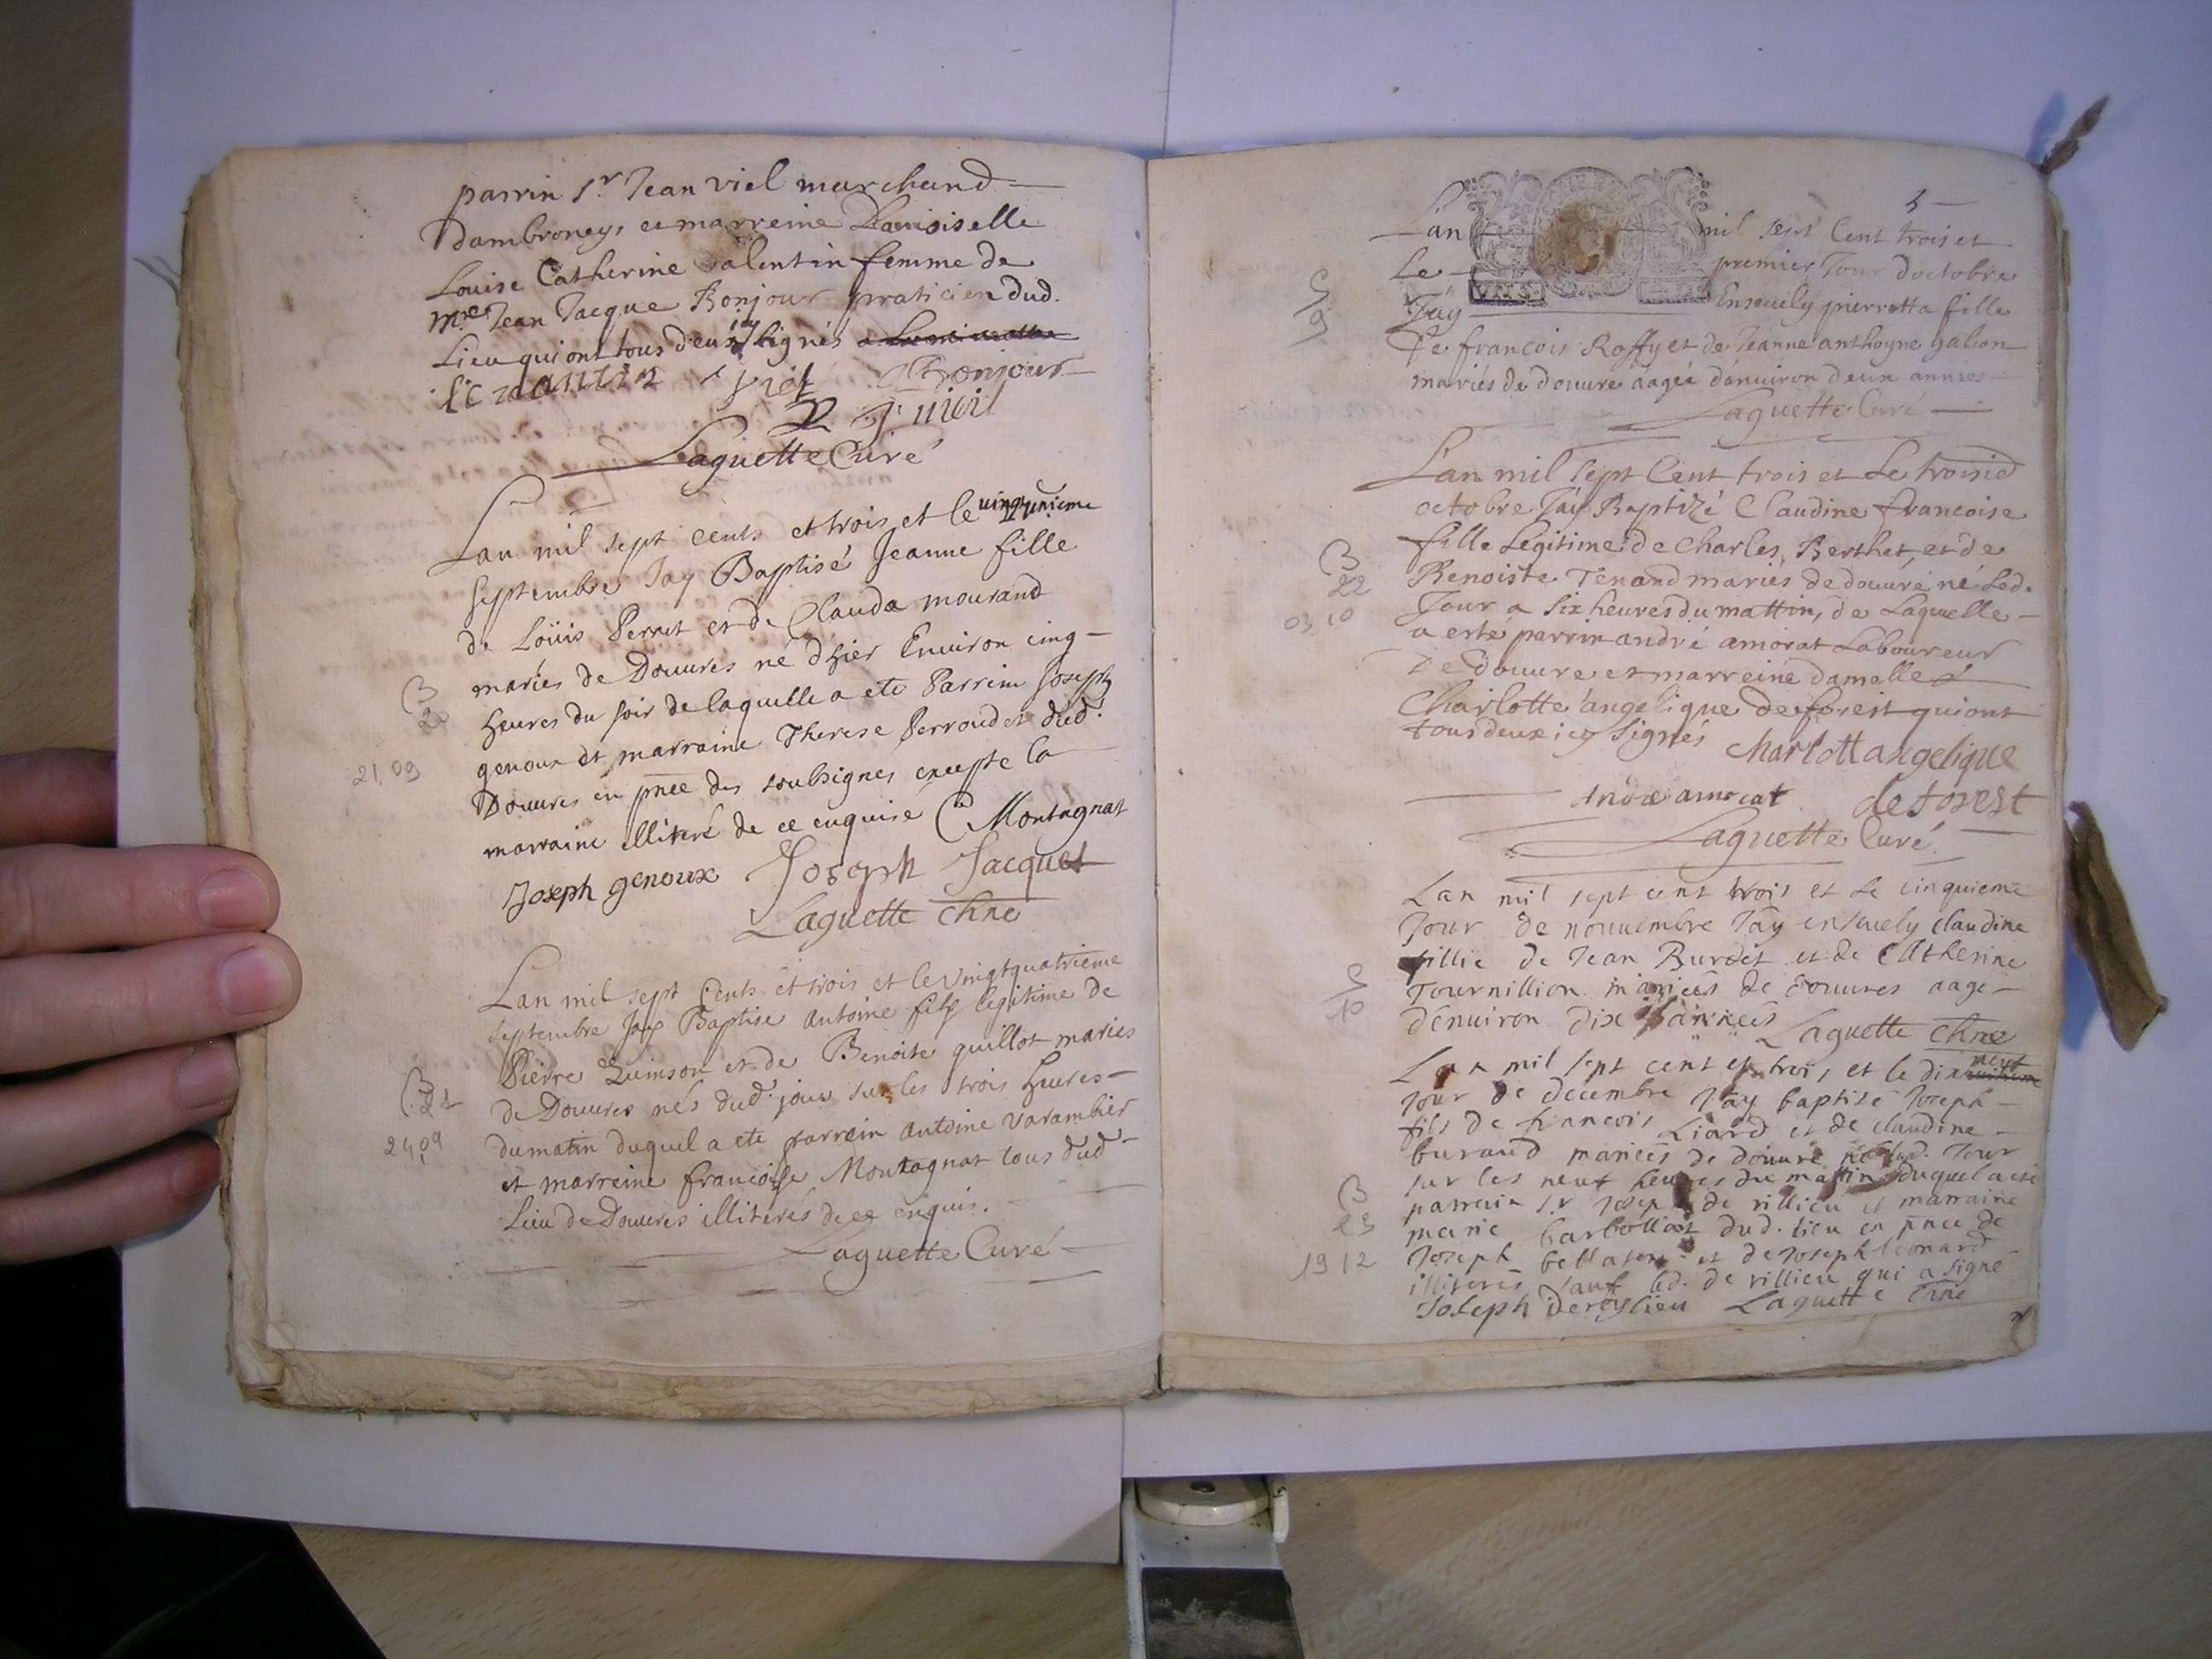 parrin Sr. Jean viel marchand
dambroneys et marreine Damoiselle
Louise Catherine valentin femme de
mre Jean Jacque Bonjour praticien dud.
Lieu qui ont tous deux icy signés
Bonjour
Laguette Curé
Lan mil sept cents et trois et le vingtunieme
septembre Jay Baptisé Jeanne fille
de Loüis Perret et de Clauda mourand
mariés de Douures né d'hier Enuiron cinq
B
20
heures du soir de laquelle a ete Parrein Joseph
genoux et marraine Therese Perroud et dud.
21.09
Douures en pnce des soubsignes excepte la
marraine illiteré de ce enquise C Montagnat
Joseph genoux Joseph Jacquet
Laguette Cure
Lan mil sept Cents et trois et le vingtquatrieme
septembre Jay Baptise antoine fils legitime de
Pierre Quinson et de Benoite quillot maries
B
21
de Douures nés dud. jour sur les trois heures
24.09
du matin duquel a ete parrein antoine varambier
et marreine francoise Montagnat tous dud
Lieu de Douures illiterés de ce enquis.
Laguette Curé
Lan mil sept Cent trois et
Le premier Jour d'octobre
S
9
Jay Enseuely pierretta fille
de francois Roffy et de Jeanne anthoyne galion
mariés de douure aagée denuiron deux annees
Laguette Curé
Lan mil sept Cent trois et Le troisie
octobre Jay Baptizé Claudine francoise
fille Legitime de Charles Berthet, et de
B
22
Benoiste Tenand mariés de douure né Led.
03.10
Jour a six heures du mattin, de Laquelle
a esté parrin andré amorat Laboureur
De douure et marreine damelle
Charlotte angelique de forest qui ont
tous deux icy signés charlott angelique
andre amorat de forest
Laguette Curé
Lan mil sept cent trois et le cinquieme
Jour de nouuembre Jay enseuely claudine
fillie de Jean Burdet et de Catherine
S
10
Tournillion mariees de douures aage
denuiron dix annees
Laguette Cure
Lan mil sept cent et trois, et le dix neuf
Jour de decembre Jay baptisé Joseph
fils de francois Liard et de claudine
burand mariees de douure né led. Jour
sur les neuf heures du mattin duquel a esté
B
23
parrain Sr Joseph de rillieu et marraine
marie barbollat dud. lieu en pnce de
19 12
Joseph bellaton et de Joseph leonard
illiteres sauf led. de rillieu qui a signe
Joseph derylieu Laguette Cure